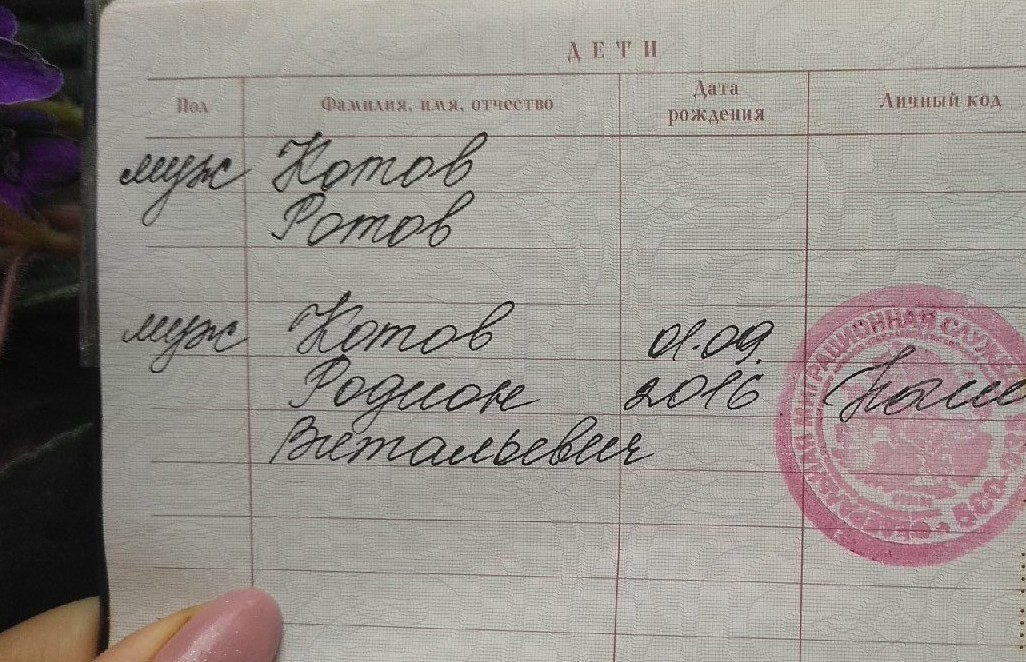 ДЕТИ
Пол Фамилия, имя, отчество Дата рождения Личный код
муж Котов
Ротов
муж Котов 01.09.
Родион 2016
Витальевич
МИГРАЦИОННАЯ СЛУЖБА